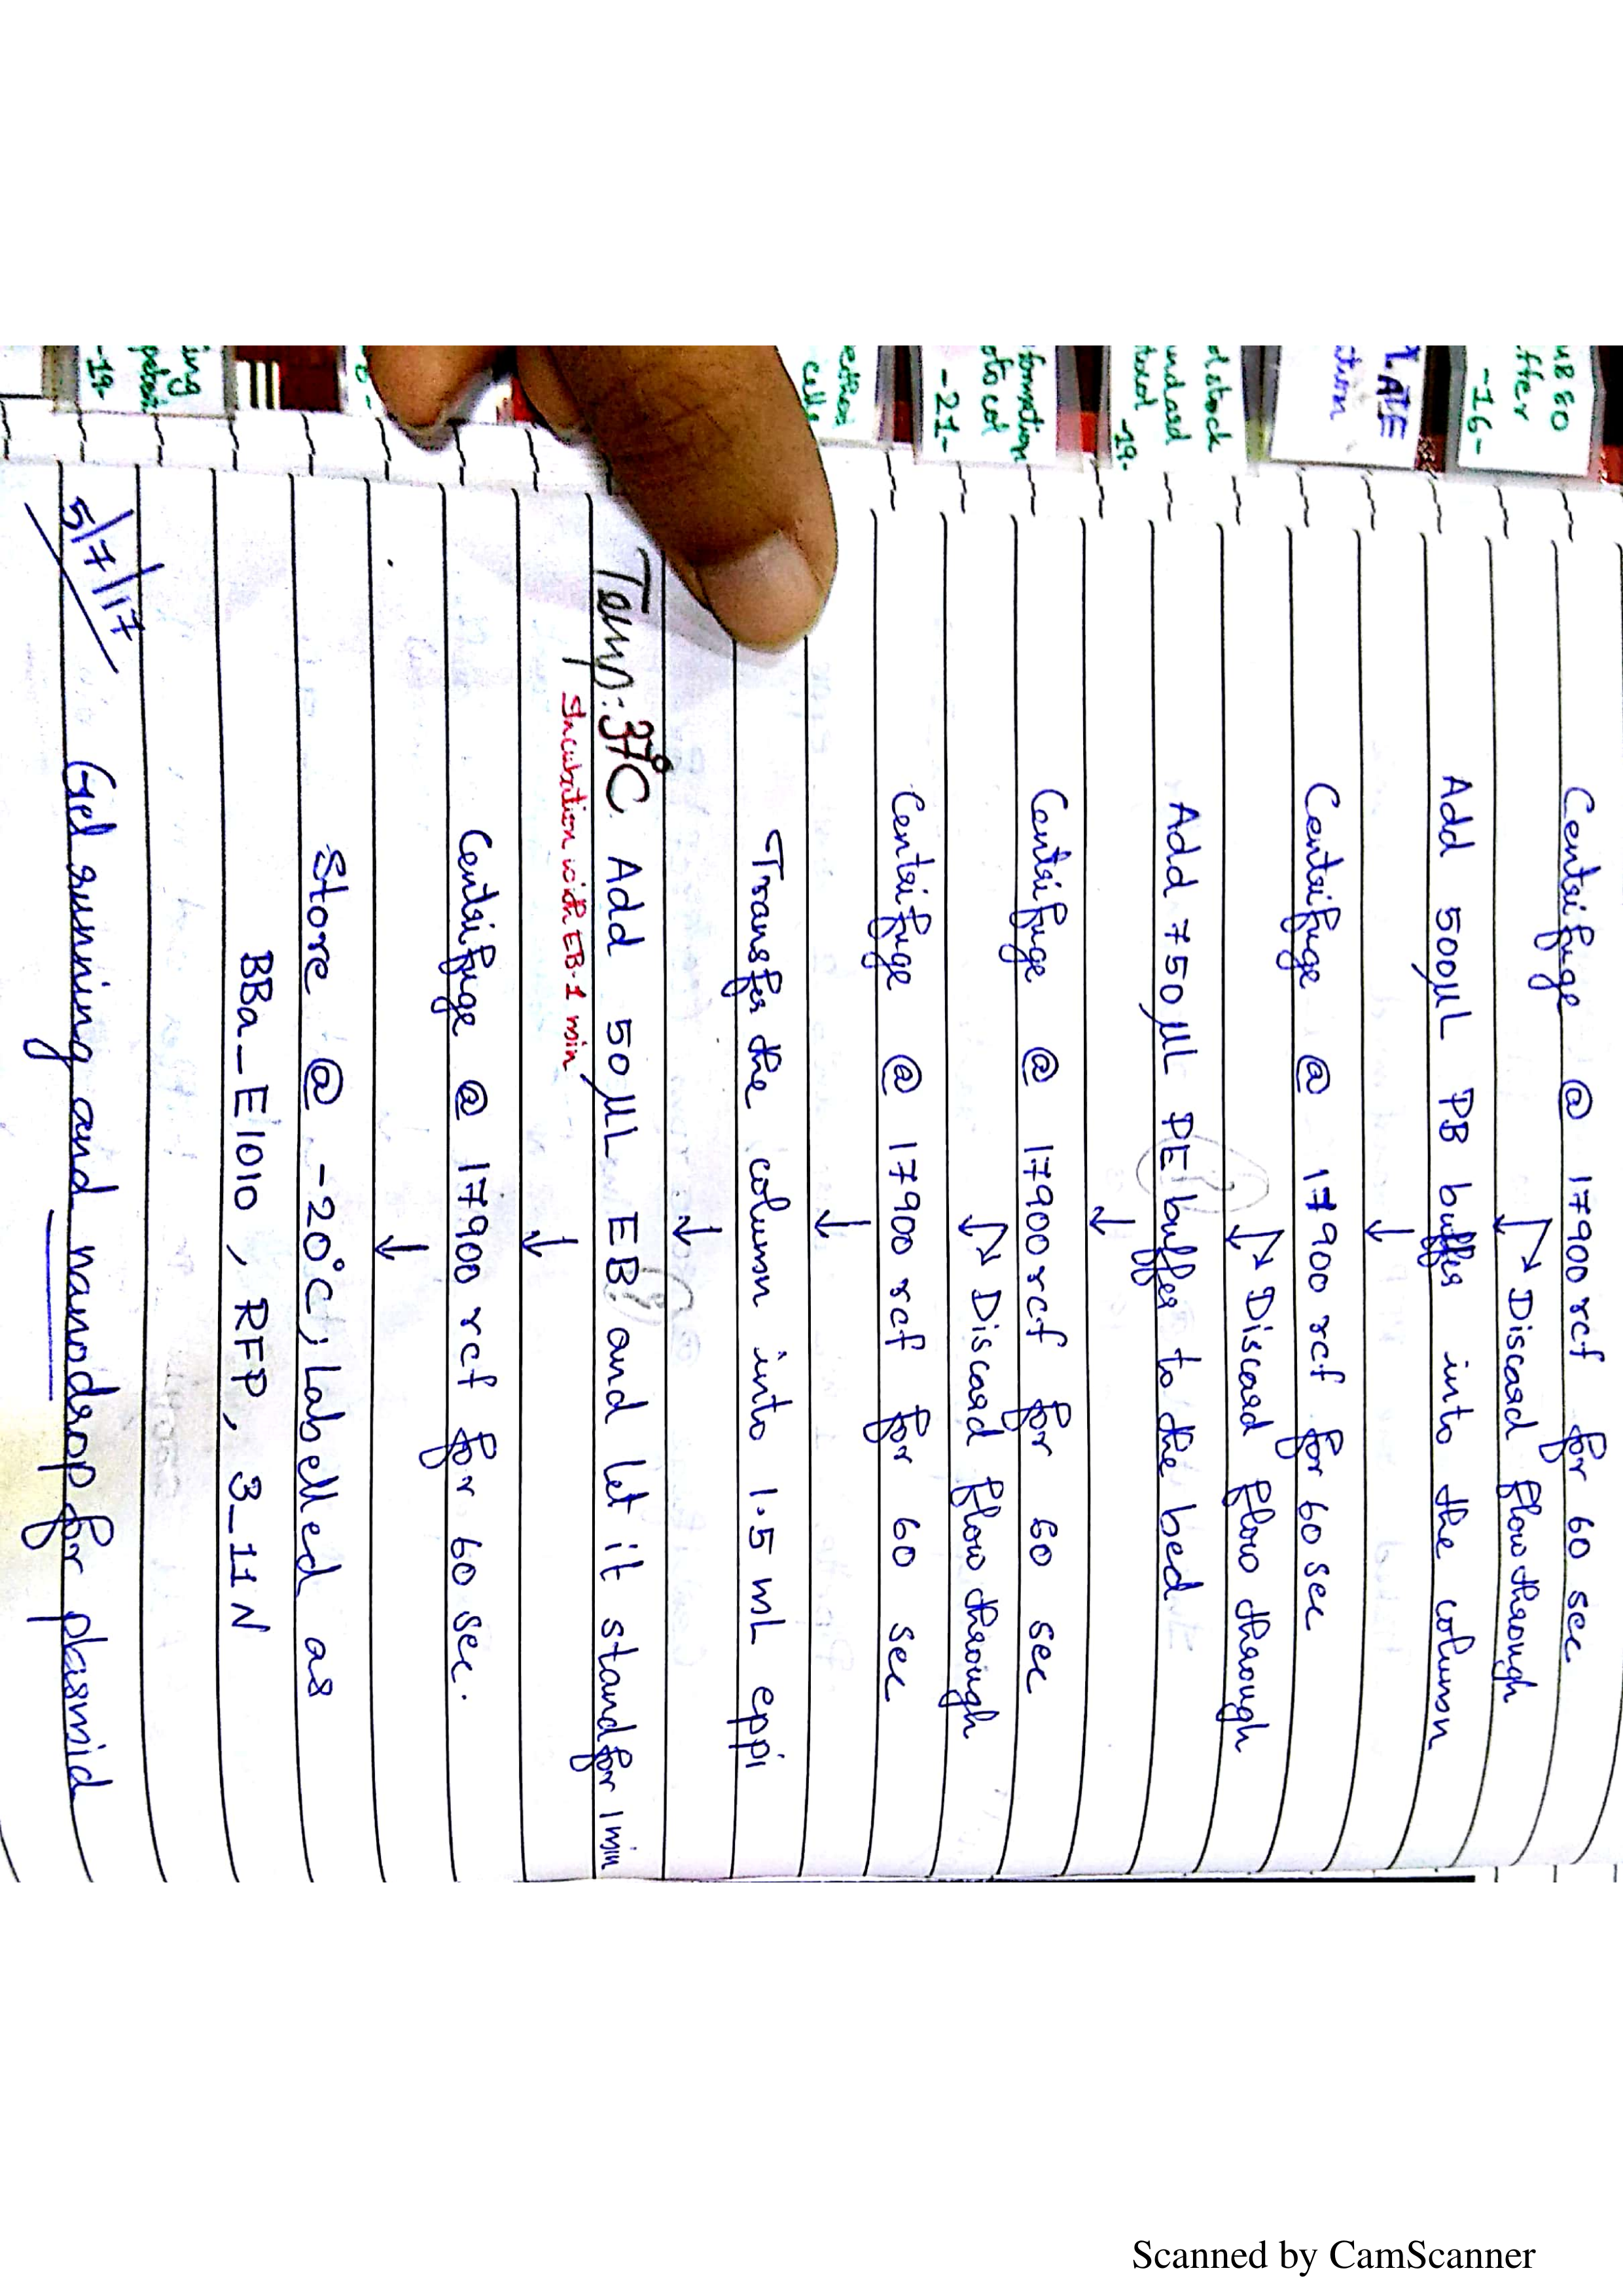 Centrifuge @ 17900 rcf for 60 sec
↓→ Discard flow through
Add 500µL PB buffer into the column
↓
Centrifuge @ 17900 rcf for 60 sec
↓→ Discard flow through
Add 750µL PE buffer to the bed
↓
Centrifuge @ 17900 rcf for 60 sec
↓→ Discard flow through
Centrifuge @ 17900 rcf for 60 sec
↓
Transfer the column into 1.5 mL eppi
↓
Temp: 37°C Add 50µL EB and let it stand for 1 min
Incubation with EB-1 min
↓
Centrifuge @ 17900 rcf for 60 sec.
↓
Store @ -20°C; labelled as
BBa_E1010, RFP, 3_11N
5/7/17 Gel running and nanodrop for plasmid
-16-
-19-
-21-
-19-
Scanned by CamScanner